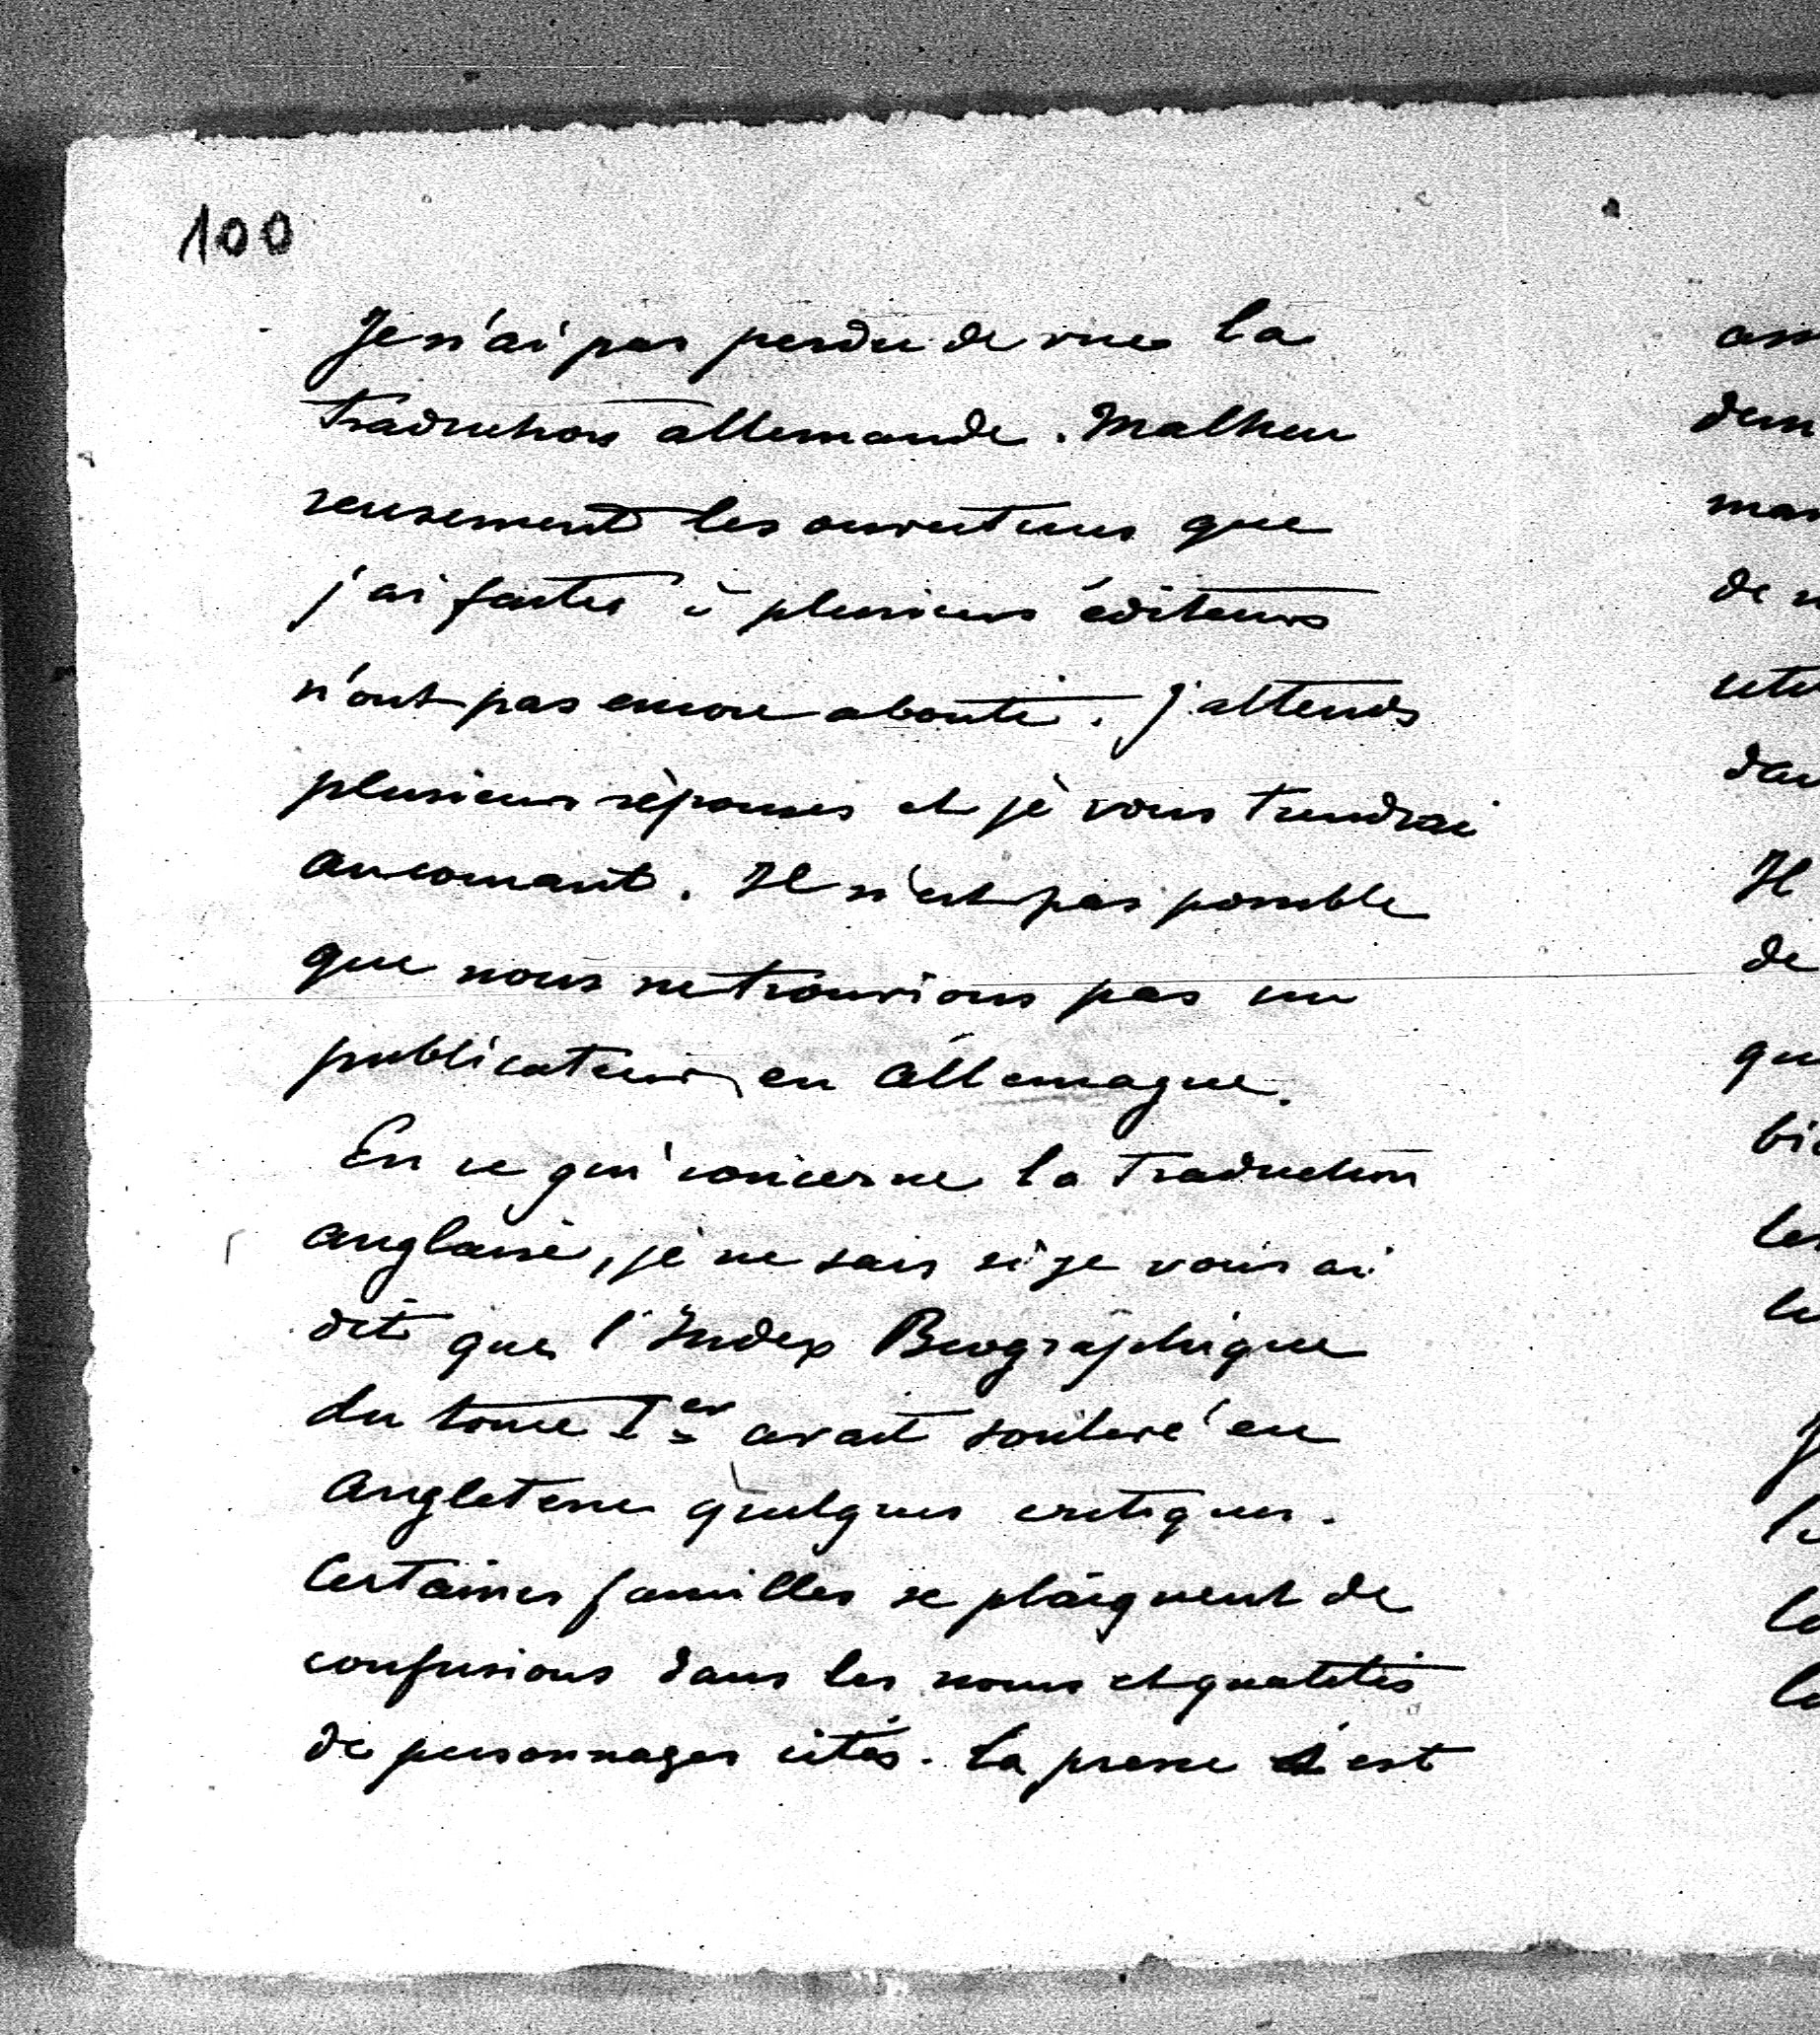 100
Je n'ai pas perdu de vue la
traduction allemande. Malheu
reusement les ouvertures que
j'ai faites à plusieurs éditeurs
n'ont pas encore abouti. J'attends
plusieurs réponses et je vous tiendrai
au courant. Il n'est pas possible
que nous ne trouvions pas un
publicateur en Allemagne.
En ce qui concerne la traduction
anglaise, je ne sais si je vous ai
dit que l'Index Biographique
du tome Ier avait soulevé en
Angleterre quelques critiques.
Certaines familles se plaignent de
confusions dans les noms et qualités
de personnages cités. La presse s'est
de
Il
de
qu